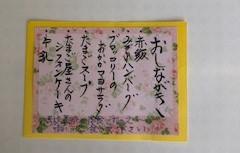 おしながき
赤飯
みそれハンバーグ
ブロッコリーの
おかかマヨサラダ
たまごスープ
たまご屋さんの
シフォンケーキ
牛乳